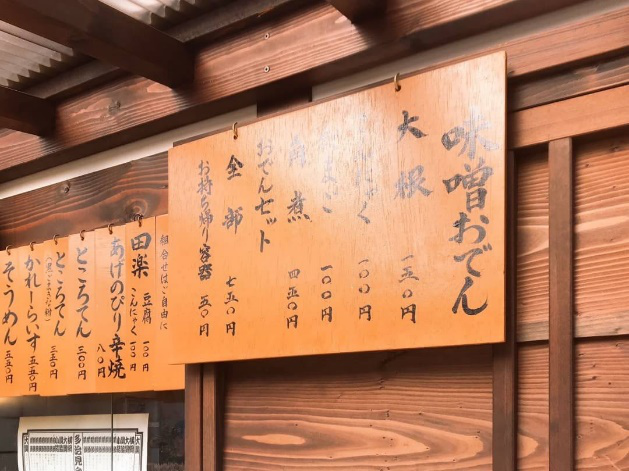 味噌おでん
大根 一五〇円
こんにゃく 一〇〇円
一〇〇円
角煮 四五〇円
おでんセット
全部 七五〇円
お持ち帰り容器 五〇円
組合せはご自由に
田楽 豆腐 一〇〇円
こんにゃく 一〇〇円
あげのぴり辛焼 八〇円
ところてん 三〇〇円
ところてん 三五〇円
かれーらいす 五五〇円
そうめん 五五〇円